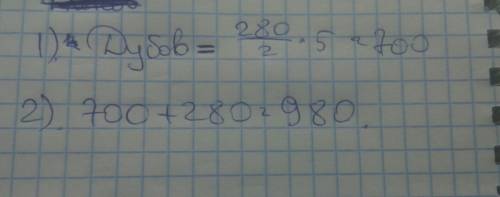 1). Дубов = 280/2 · 5 = 700
2). 700 + 280 = 980.